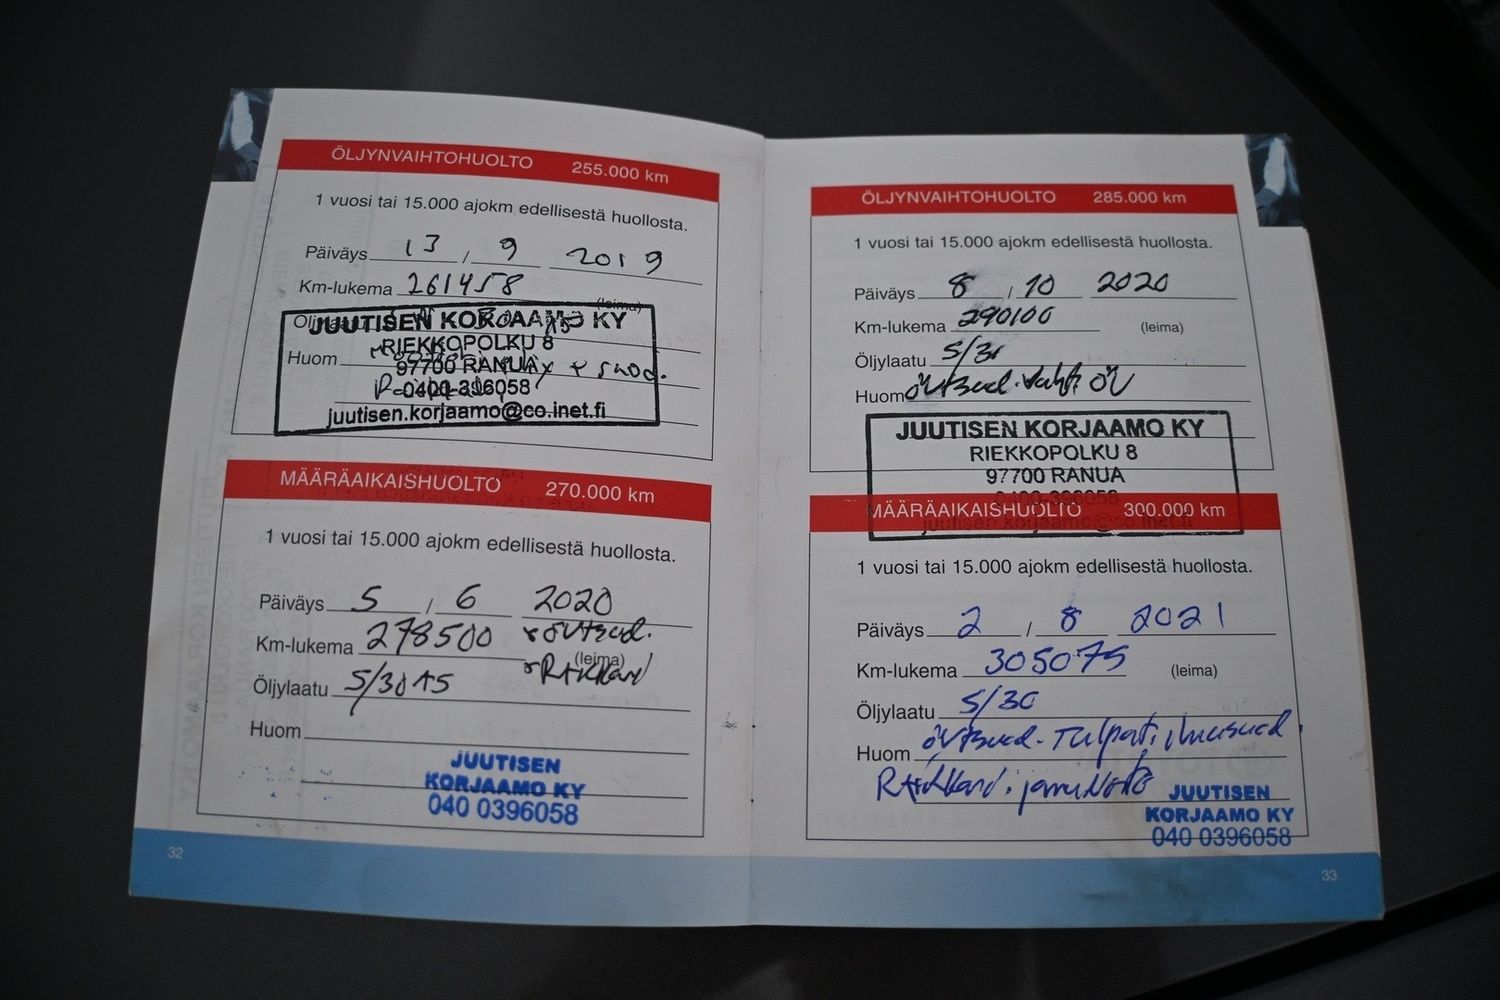 ÖLJYNVAIHTOHUOLTO 255.000 km
1 vuosi tai 15.000 ajokm edellisestä huollosta.
Päiväys 13 / 9 2019
Km-lukema 261458
(leima)
Öljylaatu
JUUTISEN KORJAAMO KY
RIEKKOPOLKU 8
Huom
97700 RANUA
0400-396058
juutisen.korjaamo@co.inet.fi
MÄÄRÄAIKAISHUOLTO 270.000 km
1 vuosi tai 15.000 ajokm edellisestä huollosta.
Päiväys 5 / 6 2020
Km-lukema 278500
(leima)
Öljylaatu 5/30
Huom
JUUTISEN
KORJAAMO KY
040 0396058
32
ÖLJYNVAIHTOHUOLTO 285.000 km
1 vuosi tai 15.000 ajokm edellisestä huollosta.
Päiväys 8 / 10 2020
Km-lukema 290100 (leima)
Öljylaatu 5/30
Huom
JUUTISEN KORJAAMO KY
RIEKKOPOLKU 8
97700 RANUA
0400-396058
juutisen.korjaamo@co.inet.fi
MÄÄRÄAIKAISHUOLTO 300.000 km
1 vuosi tai 15.000 ajokm edellisestä huollosta.
Päiväys 2 / 8 2021
Km-lukema 305075 (leima)
Öljylaatu 5/30
Huom
JUUTISEN
KORJAAMO KY
040 0396058
33